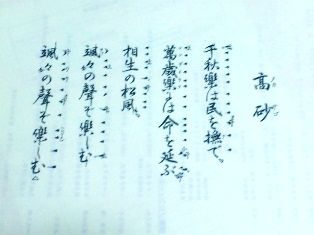 高砂
千秋樂は民を撫で。
萬歳樂には命を延ぶ
相生の松風。
颯々の聲ぞ樂しむ
颯々の聲ぞ樂しむ